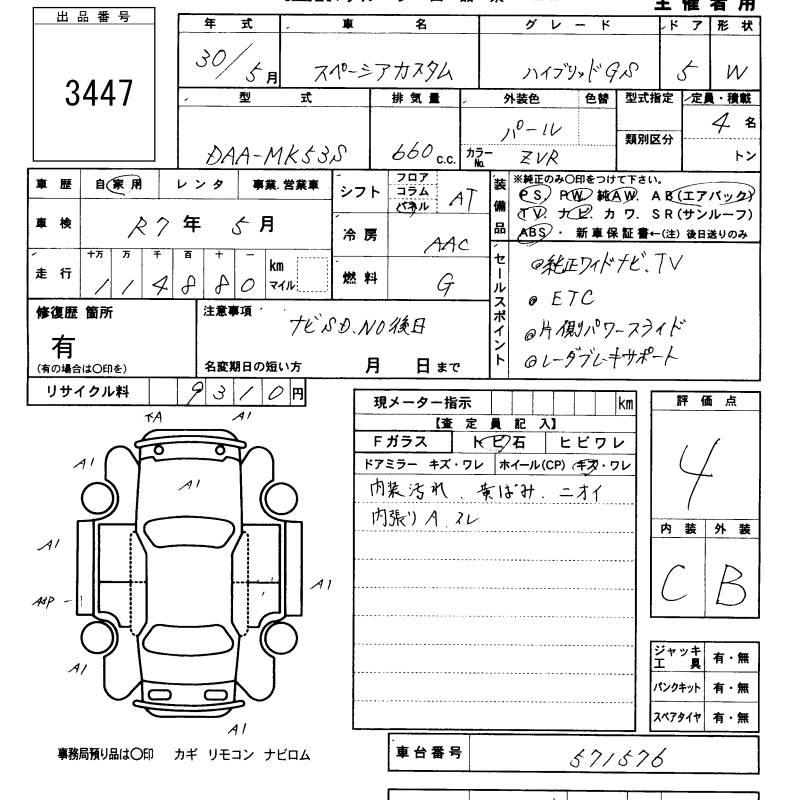 主催者用
出品番号
3447
年式 車名 グレード ドア 形状
30/5月 スペーシアカスタム ハイブリッドGS 5 W
型式 排気量 外装色 色替 型式指定 定員・積載
DAA-MK53S 660c.c. パール 類別区分 4名
カラーNo. ZVR トン
車歴 自家用 レンタ 事業.営業車
車検 R7年5月
走行 十万 万 千 百 十 一
114880 km マイル
シフト フロア コラム パネル AT
冷房 AAC
燃料 G
装備品 ※純正のみ〇印をつけて下さい。
PS. PW. 純AW. AB(エアバック)
TV. ナビ. カワ. SR(サンルーフ)
ABS・ 新車保証書←(注) 後日送りのみ
セールスポイント
◎純正ワイドナビ、TV
◎ ETC
◎片側パワースライド
◎レーダブレーキサポート
修復歴 箇所
有
(有の場合は〇印を)
注意事項
ナビSD.NO後日
名変期日の短い方 月 日まで
リサイクル料 9310円
現メーター指示 km
【査定員記入】
Fガラス トビ石 ヒビワレ
ドアミラー キズ・ワレ ホイール(CP) キズ・ワレ
内装汚れ、黄ばみ、ニオイ
内張りA、スレ
評価点
4
内装 外装
C B
A1
A1
A1
A1
A1
A1
A1
A1
ジャッキ工具 有・無
パンクキット 有・無
スペアタイヤ 有・無
事務局預り品は〇印 カギ リモコン ナビロム
車台番号 571576